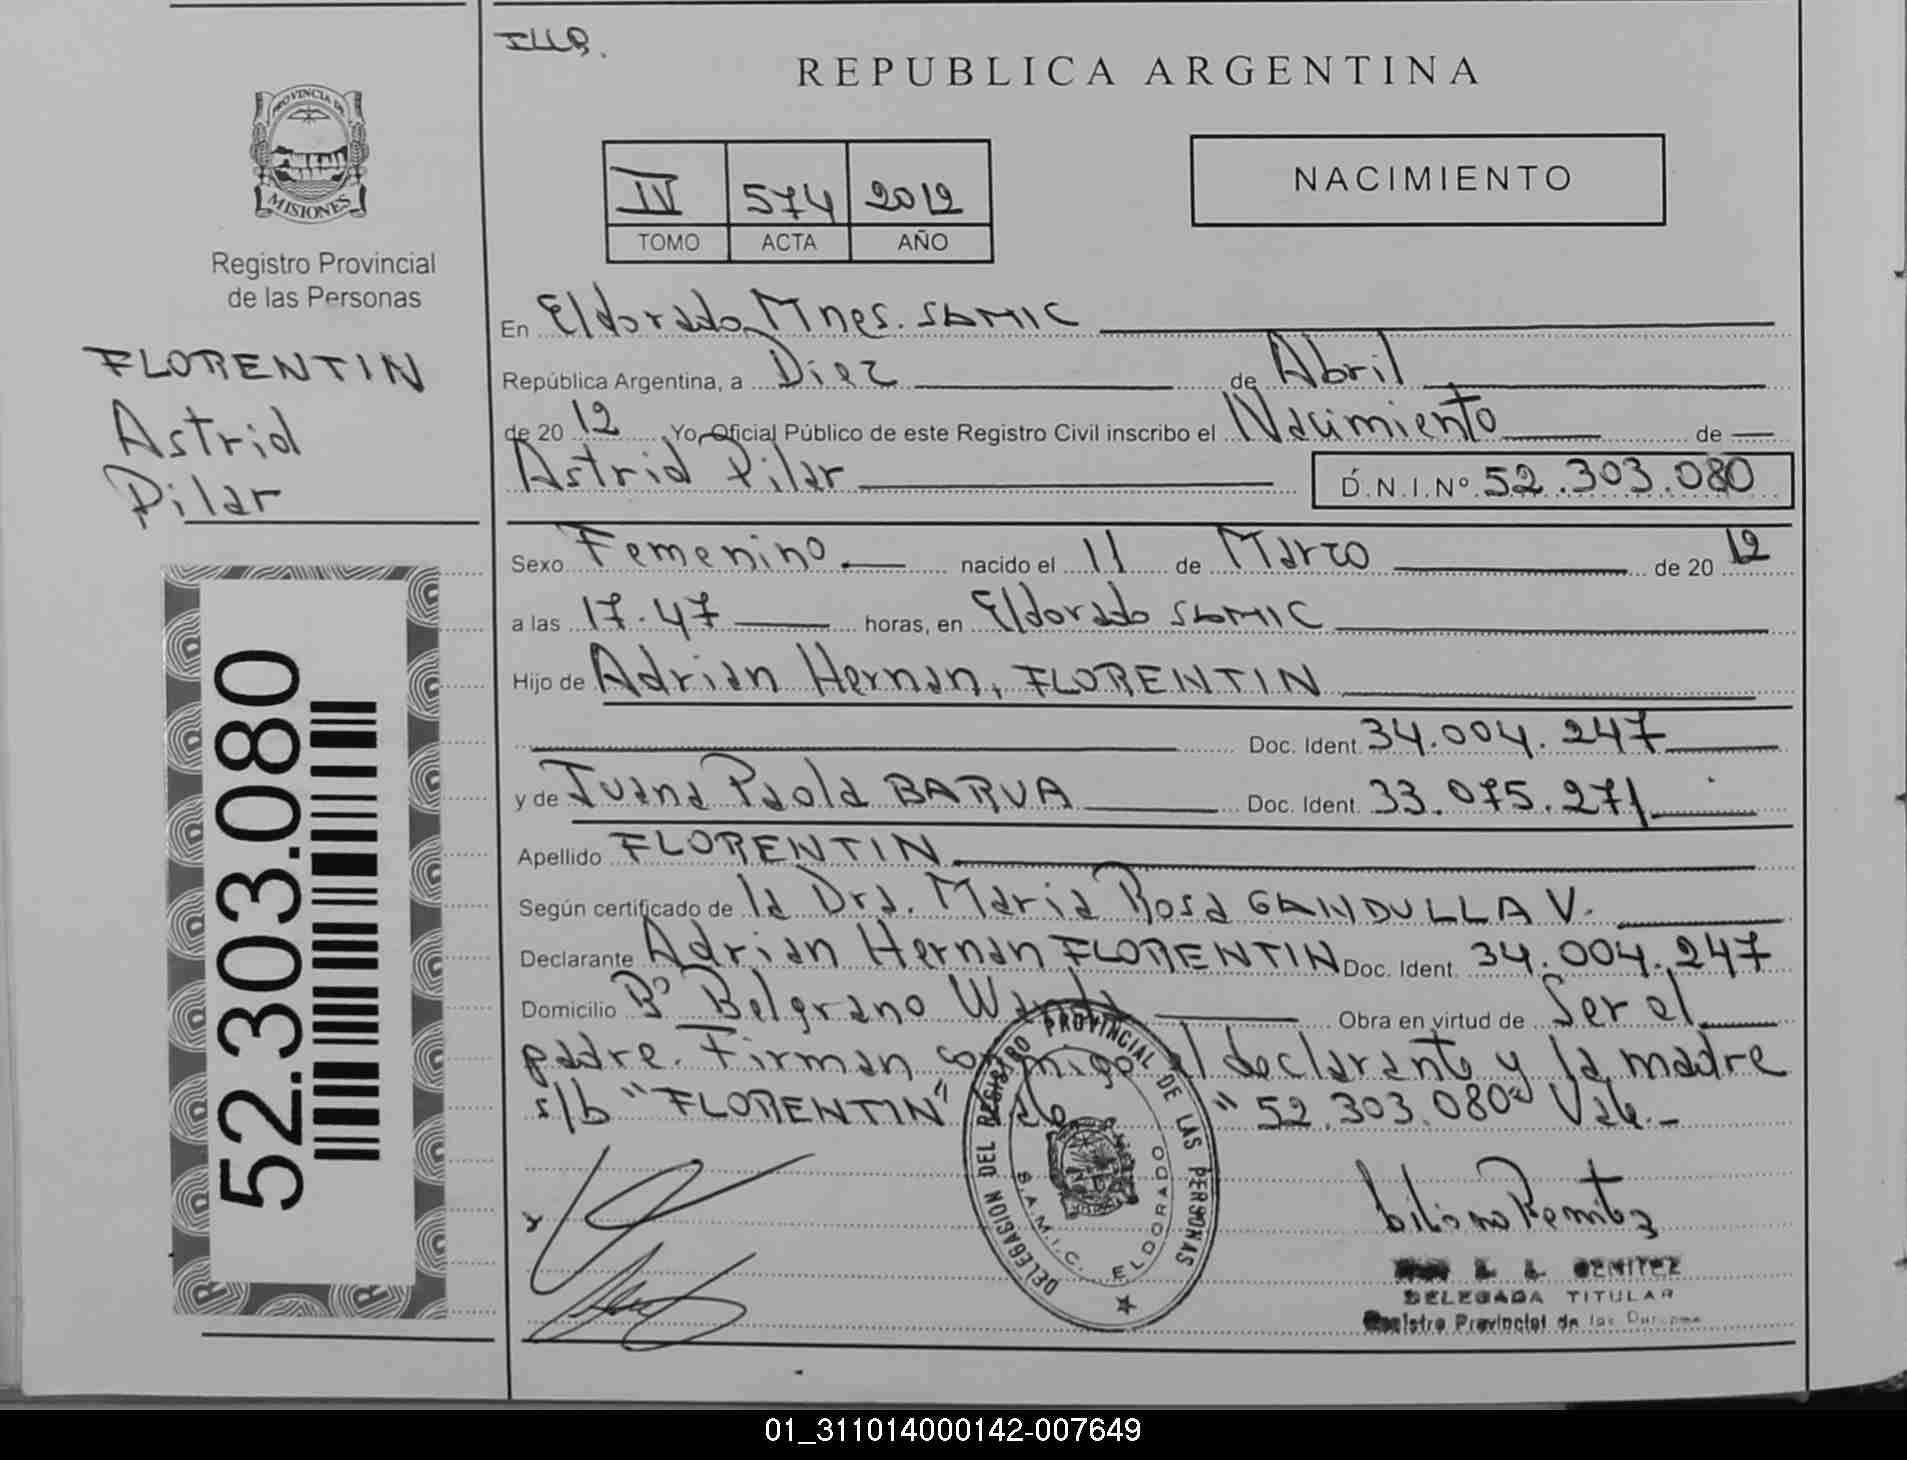 ILLB.
REPUBLICA ARGENTINA
PROVINCIA DE
MISIONES
Registro Provincial
de las Personas
IV 574 2012
TOMO ACTA AÑO
NACIMIENTO
FLORENTIN
Astrid
Pilar
52.303.080
En Eldorado Mnes. SAMIC
República Argentina, a Diez de Abril
de 20 12 Yo, Oficial Público de este Registro Civil inscribo el Nacimiento de
Astrid Pilar D.N.I.Nº 52.303.080
Sexo Femenino nacido el 11 de Marzo de 20 12
a las 17.47 horas, en Eldorado SAMIC
Hijo de Adrian Hernan, FLORENTIN
Doc. Ident. 34.004.247
y de Juana Paola BARUA Doc. Ident. 33.075.271
Apellido FLORENTIN
Según certificado de la Dra. Maria Rosa GANDULLA V.
Declarante Adrian Hernan FLORENTIN Doc. Ident. 34.004.247
Domicilio Bº Belgrano Wanda Obra en virtud de Ser el
padre. Firman conmigo el declarante y la madre
s/b "FLORENTIN" "52.303.080" Vale.-
DELEGACION DEL REGISTRO PROVINCIAL DE LAS PERSONAS
S.A.M.I.C. ELDORADO
BENITEZ
DELEGADA TITULAR
Registro Provincial de las
01_311014000142-007649